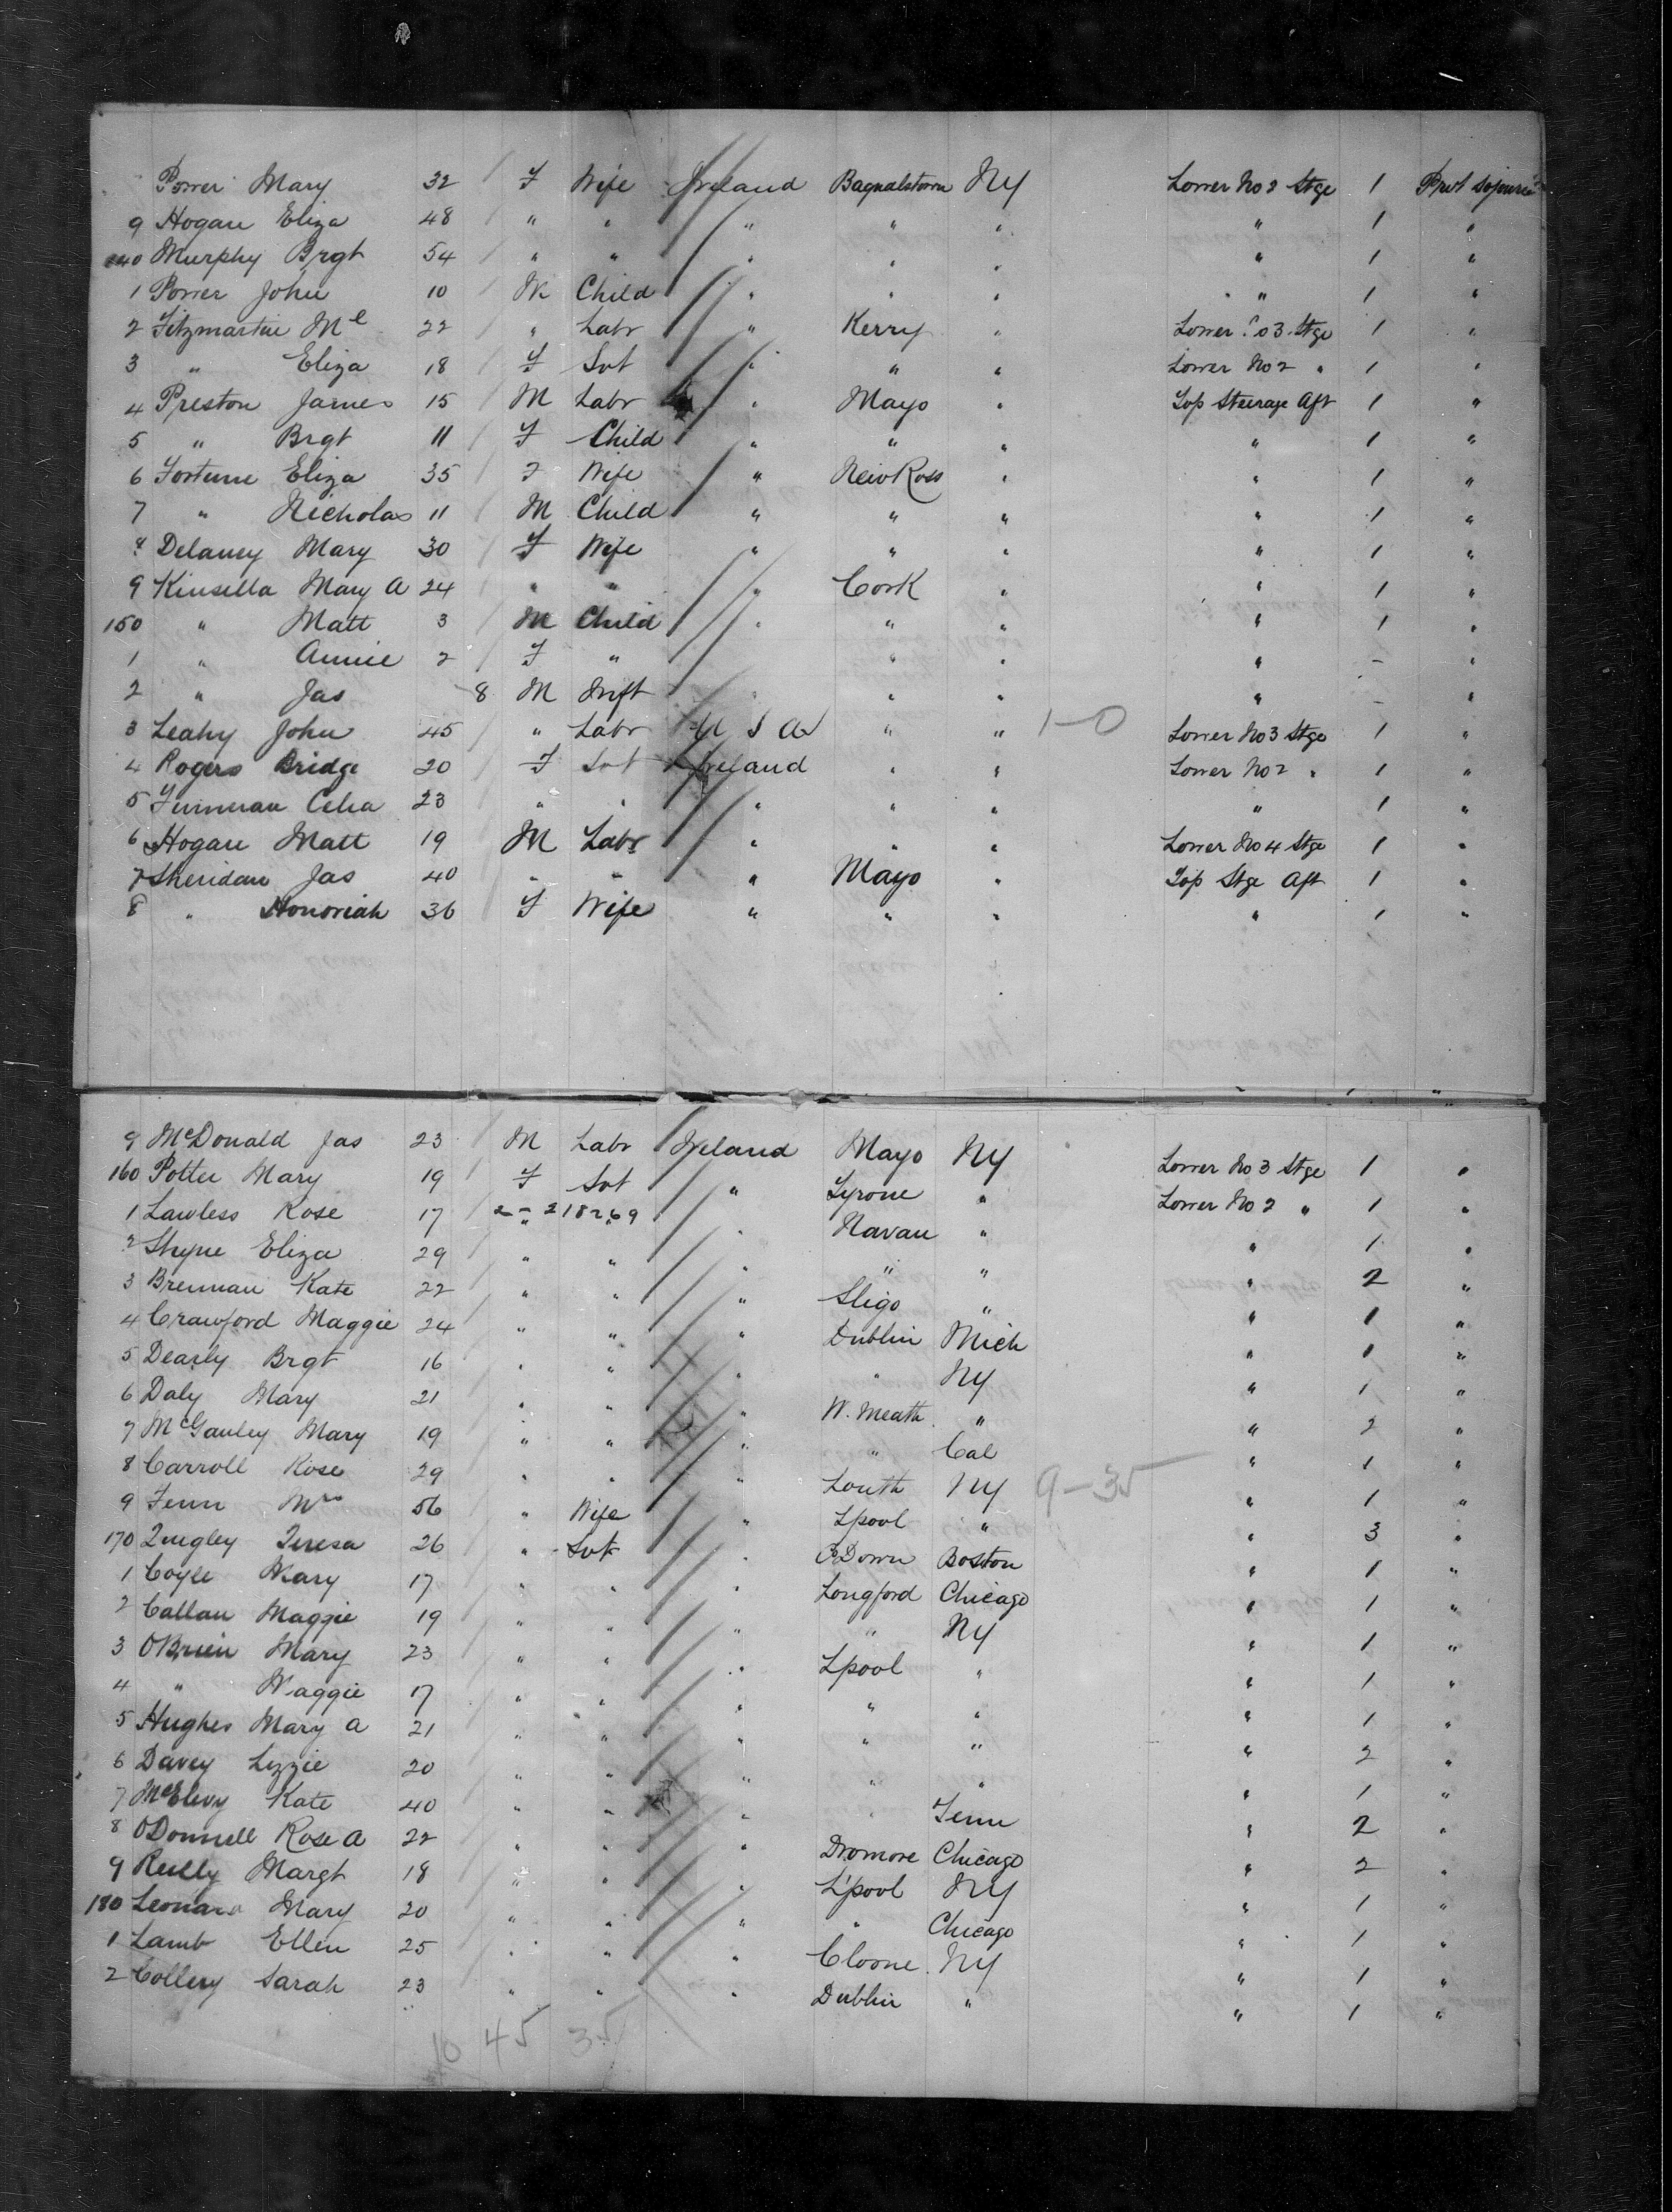 Power Mary 32 F Wife Ireland Bagnalstown NY Lower No 2 Stge 1 Prot
9 Hogan Eliza 48 " " " " " " 1 "
140 Murphy Brgt 54 " " " " " " 1 "
1 Power John 10 M Child " " " " 1 "
2 Fitzmartin Ml 22 " Labr " Kerry " Lower No 3 Stge 1 "
3 " Eliza 18 F Svt " " " Lower No 2 " 1 "
4 Preston James 15 M Labr " Mayo " Top Steerage Aft 1 "
5 " Brgt 11 F Child " " " " 1 "
6 Fortune Eliza 35 F Wife " New Ross " " 1 "
7 " Nicholas 11 M Child " " " " 1 "
8 Delaney Mary 30 F Wife " " " " 1 "
9 Kinsella Mary A 24 " " " Cork " " 1 "
150 " Matt 3 M Child " " " " 1 "
1 " Annie 2 F " " " " - "
2 " Jas 8 M Inft " " " " - "
3 Leahy John 45 " Labr U S A " " 1-0 Lower No 3 Stge 1 "
4 Rogers Bridge 20 F Svt Ireland " " Lower No 2 " 1 "
5 Finnman Celia 23 " " " " " " 1 "
6 Hogan Matt 19 M Labr " " " Lower No 4 Stge 1 "
7 Sheridan Jas 40 " " " Mayo " Top Stge Aft 1 "
8 " Honoriah 36 F Wife " " " " 1 "
9 McDonald Jas 23 M Labr Ireland Mayo NY Lower No 3 Stge 1 "
160 Potter Mary 19 F Svt " Tyrone " Lower No 2 " 1 "
1 Lawless Rose 17 2-218269 " " " Navan " " 1 "
2 Shyne Eliza 29 " " " " " " 2 "
3 Brennan Kate 22 " " " Sligo " " 1 "
4 Crawford Maggie 24 " " " Dublin Mich " 1 "
5 Dearly Brgt 16 " " " " NY " 1 "
6 Daly Mary 21 " " " W. Meath " " 2 "
7 McGauley Mary 19 " " " " Cal " 1 "
8 Carroll Rose 29 " " " Louth NY 9-35 " 1 "
9 Fenn Mrs 56 " Wife " Lpool " " 3 "
170 Quigley Teresa 26 " Svt " Co Down Boston " 1 "
1 Coyle Mary 17 " " " Longford Chicago " 1 "
2 Callan Maggie 19 " " " " NY " 1 "
3 OBrien Mary 23 " " " Lpool " " 1 "
4 " Maggie 17 " " " " " " 1 "
5 Hughes Mary A 21 " " " " " " 2 "
6 Davey Lizzie 20 " " " " " " 1 "
7 McElevy Kate 40 " " " " Tenn " 2 "
8 ODonnell Rose A 22 " " " Dromore Chicago " 2 "
9 Reilly Margt 18 " " " L'pool NY " 1 "
180 Leonard Mary 20 " " " " Chicago " 1 "
1 Lamb Ellen 25 " " " Cloone NY " 1 "
2 Collery Sarah 23 " " " Dublin " " 1 "
10 45 35